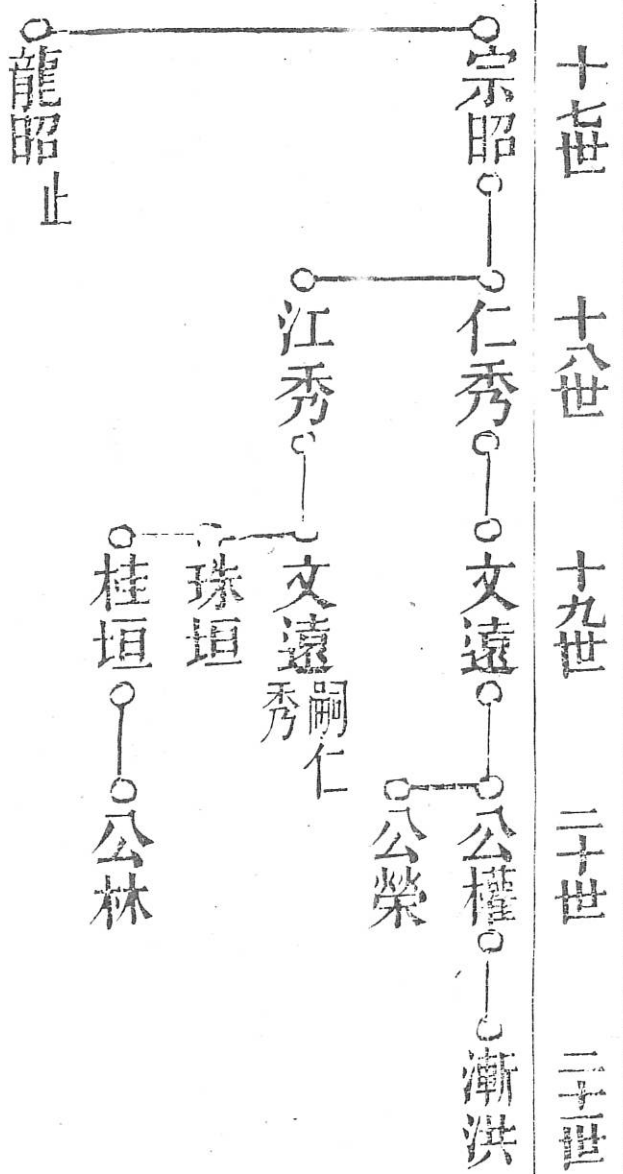 十七世
十八世
十九世
二十世
二十一世
宗昭
仁秀
文遠
公權
漸洪
公榮
江秀
文遠 嗣仁秀
珠垣
桂垣
公林
龍昭 止